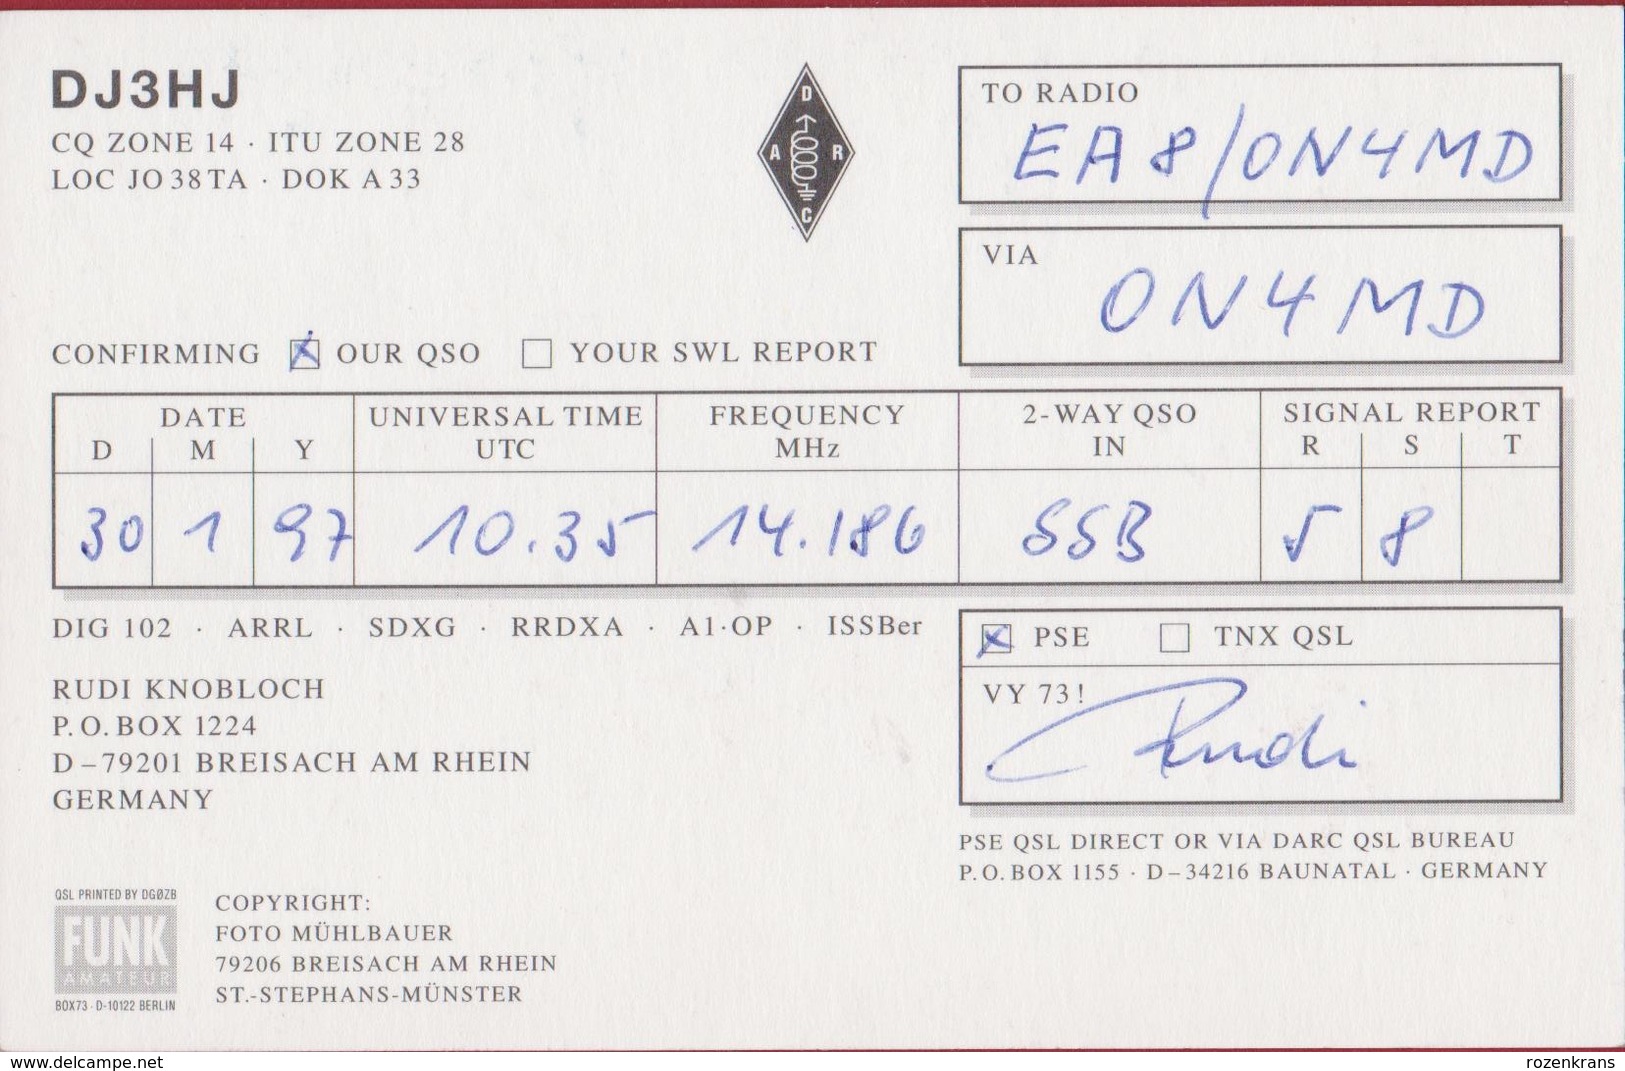 DJ3HJ
CQ ZONE 14 · ITU ZONE 28
LOC JO38TA · DOK A33
D
A R
C
TO RADIO
EA8/ON4MD
VIA
ON4MD
CONFIRMING OUR QSO YOUR SWL REPORT
DATE UNIVERSAL TIME FREQUENCY 2-WAY QSO SIGNAL REPORT
D M Y UTC MHz IN R S T
30 1 97 10.35 14.186 SSB 5 8
DIG 102 · ARRL · SDXG · RRDXA · A1·OP · ISSBer
PSE TNX QSL
VY 73!
Rudi
RUDI KNOBLOCH
P.O. BOX 1224
D–79201 BREISACH AM RHEIN
GERMANY
PSE QSL DIRECT OR VIA DARC QSL BUREAU
P.O. BOX 1155 · D–34216 BAUNATAL · GERMANY
QSL PRINTED BY DGØZB
FUNK
AMATEUR
BOX73 · D-10122 BERLIN
COPYRIGHT:
FOTO MÜHLBAUER
79206 BREISACH AM RHEIN
ST.-STEPHANS-MÜNSTER
www.delcampe.net
rozenkrans